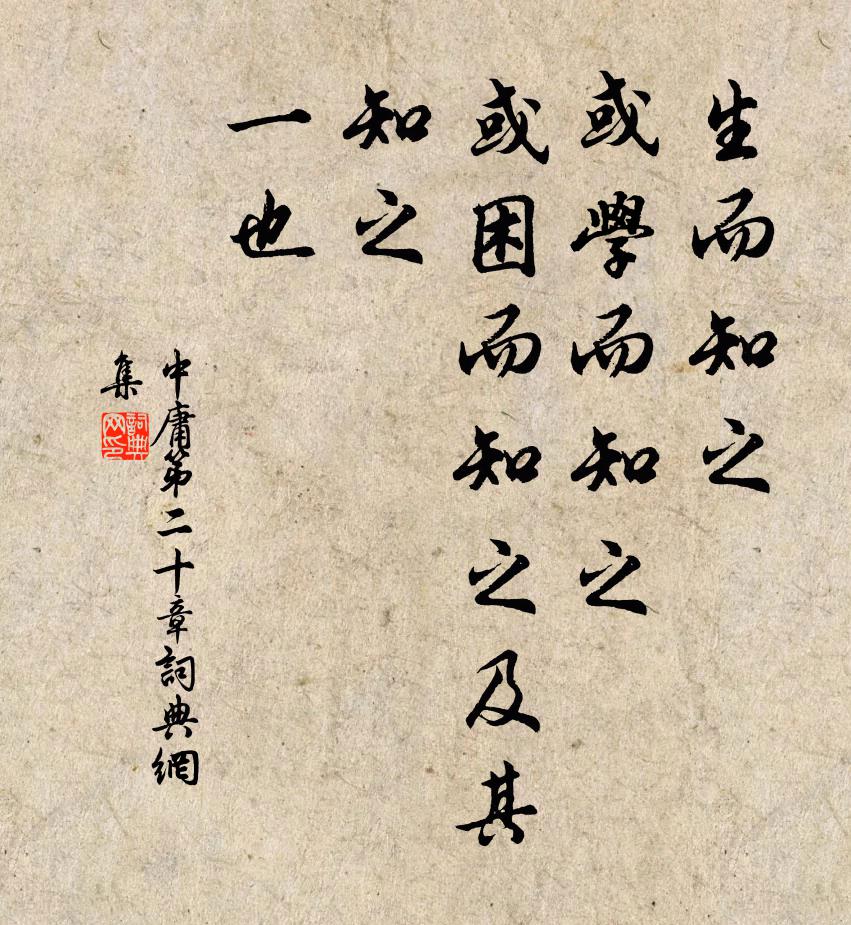 生而知之
或學而知之
或困而知之及其
知之
一也
中庸第二十章詞典網
集
詞典
网印